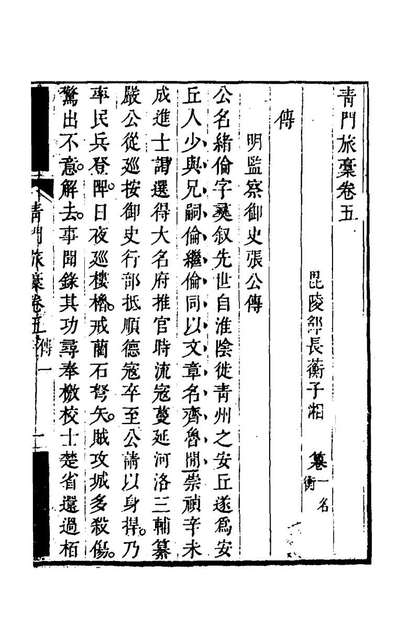 青門旅稾卷五
毘陵邵長蘅子湘 纂 一名衡
傳
明監察御史張公傳
公名緒倫字彞叙先世自淮陰徙青州之安丘遂爲安
丘人少與兄嗣倫繼倫同以文章名齊魯閒崇禎辛未
成進士謁選得大名府推官時流寇蔓延河洛三輔纂
嚴公從廵按御史行部抵順德寇卒至公請以身捍乃
率民兵登陴日夜廵樓櫓戒藺石弩矢賊攻城多殺傷
驚出不意解去事聞錄其功尋奉檄校士楚省還過栢
青門旅稾卷五 傳 一